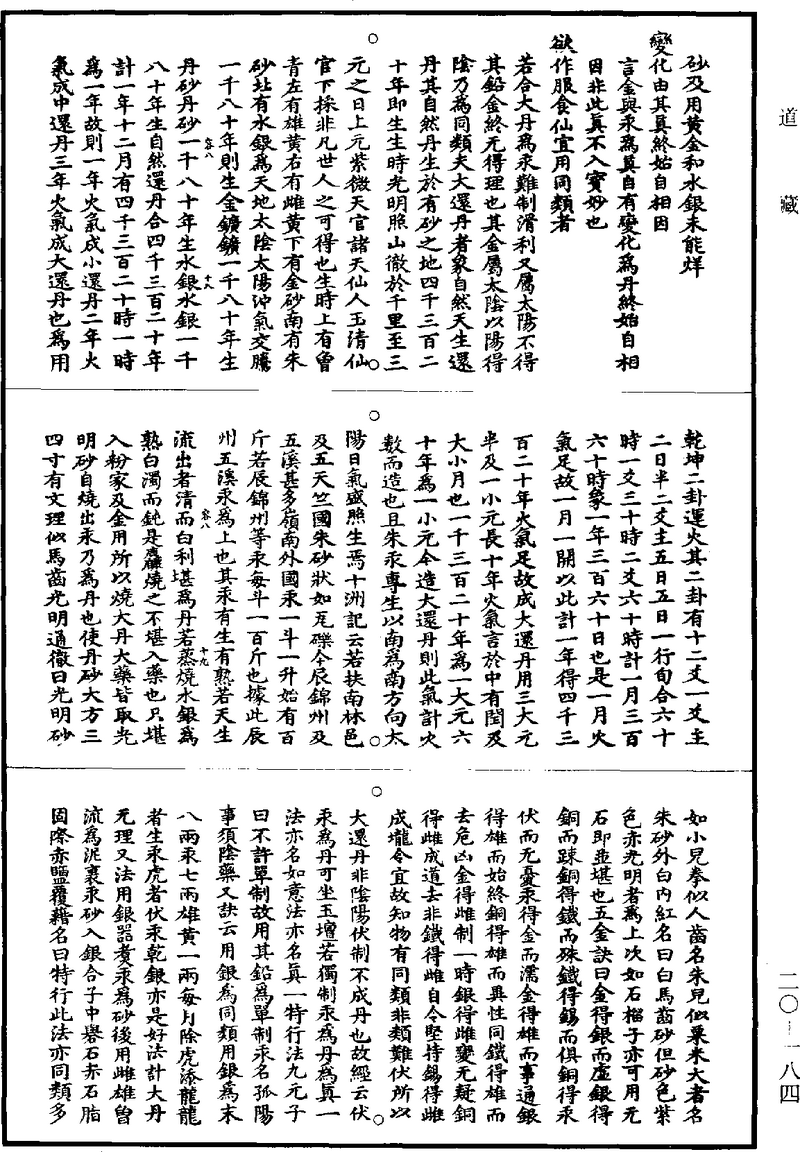 道藏
砂及用黃金和水銀未能烊
變化由其真終始自相因
言金與汞為真自有變化為丹終始自相
因非此真不入寶妙也
欲作服食仙宜用同類者
若合大丹為汞難制滑利又屬太陽不得
其鉛金終无得理也其金屬太陰以陽得
陰乃為同類夫大還丹者象自然天生還
丹其自然丹生於有砂之地四千三百二
十年即生生時光明照山徹於千里至三
元之日上元紫微天官諸天仙人玉清仙
官下採非凡世人之可得也生時上有曾
青左有雄黃右有雌黃下有金砂南有朱
砂北有水銀為天地太陰太陽沖氣交騰
一千八十年則生金鑛鑛一千八十年生
丹砂丹砂一千八十年生水銀水銀一千
八十年生自然還丹合四千三百二十年
計一年十二月有四千三百二十時一時
為一年故則一年火氣成小還丹二年火
氣成中還丹三年火氣成大還丹也為用
乾坤二卦運火其二卦有十二爻一爻主
二日半二爻主五日五日一行旬合六十
時一爻三十時二爻六十時計一月三百
六十時象一年三百六十日也是一月火
氣足故一月一開以此計一年得四千三
百二十年火氣足故成大還丹用三大元
半及一小元長十年火氣言於中有閏及
大小月也一千三百二十年為一大元六
十年為一小元今造大還丹則此氣計火
數而造也且朱汞專生以南為南方向太
陽日氣盛照生焉十洲記云若扶南林邑
及五天竺國朱砂狀如瓦礫今辰錦州及
五溪甚多嶺南外國汞一斗一升始有百
斤若辰錦州等汞每斗一百斤也據此辰
州五溪汞為上也其汞有生有熟若天生
流出者清而白利堪為丹若蒸燒水銀為
熟白濁而鈍是麤燒之不堪入藥也只堪
入粉家及金用所以燒大丹大藥皆取光
明砂自燒出汞乃為丹也使丹砂大方三
四寸有文理似馬齒光明通徹曰光明砂
如小兒拳似人齒名朱兒似粟米大者名
朱砂外白內紅名曰白馬齒砂但砂色紫
色赤光明者為上次如石榴子亦可用无
石即並堪也五金訣曰金得銀而虛銀得
銅而踈銅得鐵而殊鐵得錫而俱銅得汞
伏而无憂汞得金而濡金得雄而事通銀
得雄而始終銅得雄而異性同鐵得雄而
去危凶金得雌制一時銀得雌變无疑銅
得雌成道去非鐵得雌自令堅持錫得雌
成壠令宜故知物有同類非類難伏所以
大還丹非陰陽伏制不成丹也故經云伏
汞為丹可坐玉壇若獨制汞為丹為真一
法亦名如意法亦名真一特行法九元子
曰不許單制故用其鉛為單制汞名孤陽
事須陰藥又訣云用銀為同類用銀為末
八兩汞七兩雄黃一兩每月除虎添龍龍
者生汞虎者伏汞乾銀亦是好法計大丹
无理又法用銀器煮汞為砂後用雌雄曾
流為泥裹汞砂入銀合子中礜石赤石脂
固際赤鹽覆藉名曰特行此法亦同類多
容八
十八
容八
十九
二〇—一八四